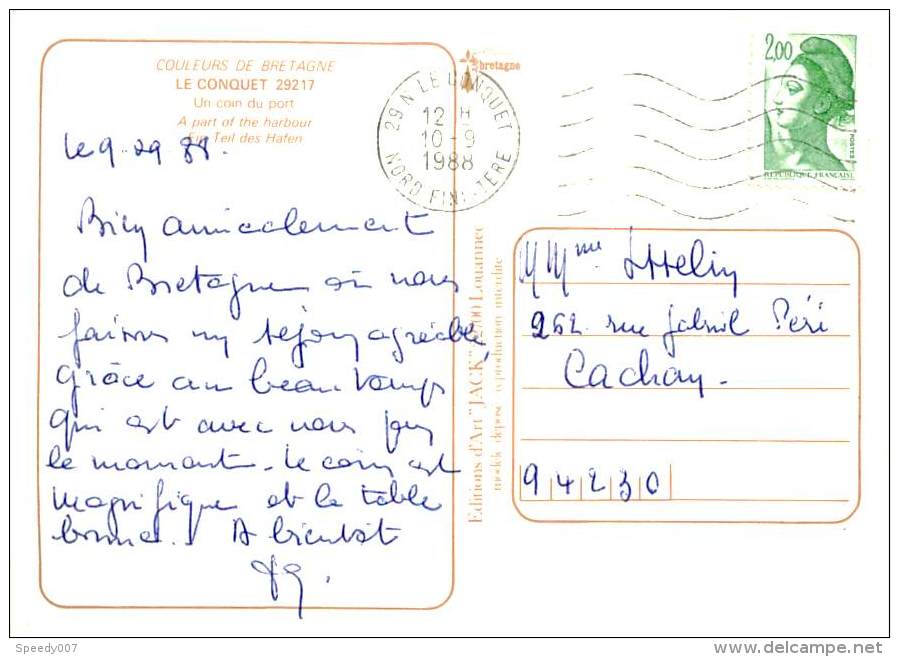 COULEURS DE BRETAGNE
LE CONQUET 29217
Un coin du port
A part of the harbour
Ein Teil des Hafen
bretagne
29 N LE CONQUET
12 H
10-9
1988
NORD FINISTERE
2,00
POSTES
REPUBLIQUE FRANÇAISE
le 9 88.
Bien amicalement
de Bretagne où nous
faisons un séjour agréable,
grâce au beau temps
qui est avec nous pour
le moment. Le coin est
magnifique et la table
bonne. A bientôt
Editions d'Art "JACK" Louannec
modèle déposé reproduction interdite
M Mme
262 rue Gabriel Péri
Cachan.
94230
Speedy007
delcampe.net